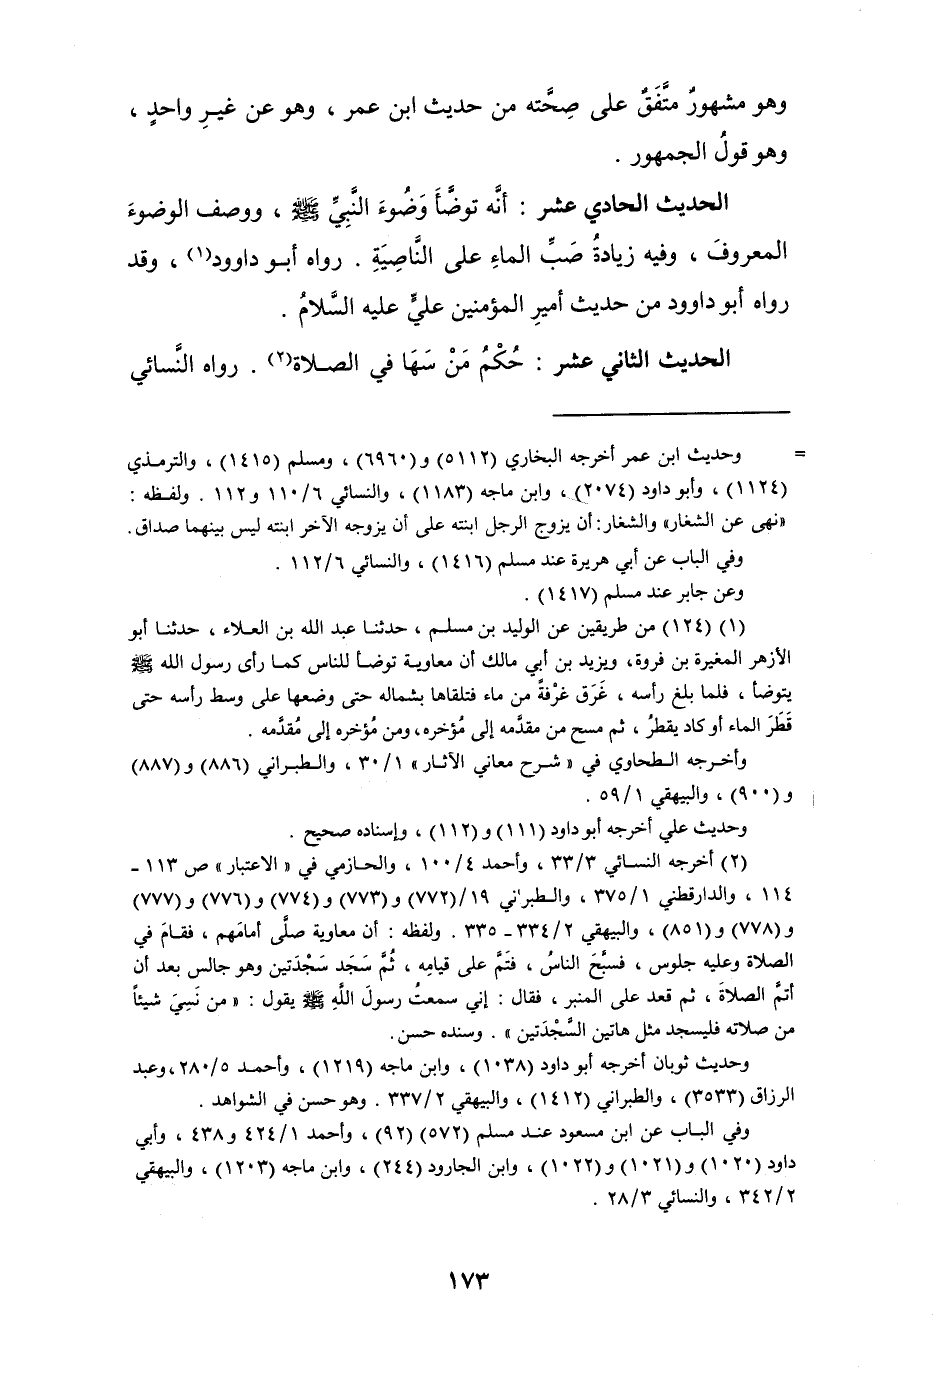 وهو مشهورٌ متَّفَقٌ على صِحَّته من حديث ابن عمر ، وهو عن غيرِ واحدٍ ،
وهو قولُ الجمهور .
الحديث الحادي عشر : أنَّه توضَّأَ وَضُوءَ النَّبِيِّ ﷺ ، ووصف الوضوءَ
المعروفَ ، وفيه زيادةُ صَبِّ الماءِ على النَّاصِيَةِ . رواه أبـو داوود(١) ، وقد
رواه أبو داوود من حديث أميرِ المؤمنين عليٍّ عليه السَّلامُ .
الحديث الثاني عشر : حُكْمُ مَنْ سَهَا في الصـلاة(٢) . رواه النَّسائي
= وحديث ابن عمر أخرجه البخاري (٥١١٢) و(٦٩٦٠) ، ومسلم (١٤١٥) ، والترمـذي
(١١٢٤) ، وأبو داود (٢٠٧٤) ، وابن ماجه (١١٨٣) ، والنسائي ١١٠/٦ و١١٢ . ولفـظه :
«نهى عن الشغار» والشغار: أن يزوج الرجل ابنته على أن يزوجه الآخر ابنته ليس بينهما صداق.
وفي الباب عن أبي هريرة عند مسلم (١٤١٦) ، والنسائي ١١٢/٦ .
وعن جابر عند مسلم (١٤١٧) .
(١) (١٢٤) من طريقين عن الوليد بن مسلـم ، حدثنـا عبد الله بن العـلاء ، حدثنـا أبو
الأزهر المغيرة بن فروة، ويزيد بن أبي مالك أن معاوية توضـأ للناس كمـا رأى رسول الله ﷺ
يتوضأ ، فلما بلغ رأسه ، غَرَق غرْفةً من ماء فتلقاها بشماله حتى وضعها على وسط رأسه حتى
قَطَرَ الماء أو كاد يقطرُ ، ثم مسح من مقدَّمه إلى مُؤخره، ومن مُؤخره إلى مُقدَّمه .
وأخـرجه الـطحاوي في « شـرح معاني الآثـار » ٣٠/١ ، والـطبـراني (٨٨٦) و(٨٨٧)
و(٩٠٠) ، والبيهقي ٥٩/١ .
وحديث علي أخرجه أبو داود (١١١) و(١١٢) ، وإسناده صحيح .
(٢) أخرجه النسائي ٣٣/٣ ، وأحمد ١٠٠/٤ ، والحـازمي في « الاعتبار » ص ١١٣ ـ
١١٤ ، والدارقطني ٣٧٥/١ ، والـطبراني ١٩/(٧٧٢) و(٧٧٣) و(٧٧٤) و(٧٧٦) و(٧٧٧)
و(٧٧٨) و(٨٥١) ، والبيهقي ٣٣٤/٢ ـ ٣٣٥ . ولفظه : أن معاوية صلَّى أمامَهم ، فقـامَ في
الصلاة وعليه جلوس ، فسبَّحَ الناسُ ، فتَمَّ على قيامِه ، ثُمَّ سَجَد سَجْدَتين وهو جالس بعد أن
أتمَّ الصلاةَ ، ثم قعد على المنبر ، فقال : إني سمعتُ رسولَ اللَّهِ ﷺ يقول : « من نَسِيَ شيئاً
من صلاته فليسجد مثل هاتين السَّجْدَتين » . وسنده حسن.
وحديث ثوبان أخرجه أبو داود (١٠٣٨) ، وابن ماجه (١٢١٩) ، وأحمـد ٢٨٠/٥، وعبد
الرزاق (٣٥٣٣) ، والطبراني (١٤١٢) ، والبيهقي ٣٣٧/٢ . وهو حسن في الشواهد .
وفي البـاب عن ابن مسعود عنـد مسلم (٥٧٢) (٩٢) ، وأحمد ٤٢٤/١ و٤٣٨ ، وأبي
داود (١٠٢٠) و(١٠٢١) و(١٠٢٢) ، وابن الجارود (٢٤٤) ، وابن ماجه (١٢٠٣) ، والبيهقي
٣٤٢/٢ ، والنسائي ٢٨/٣ .
١٧٣